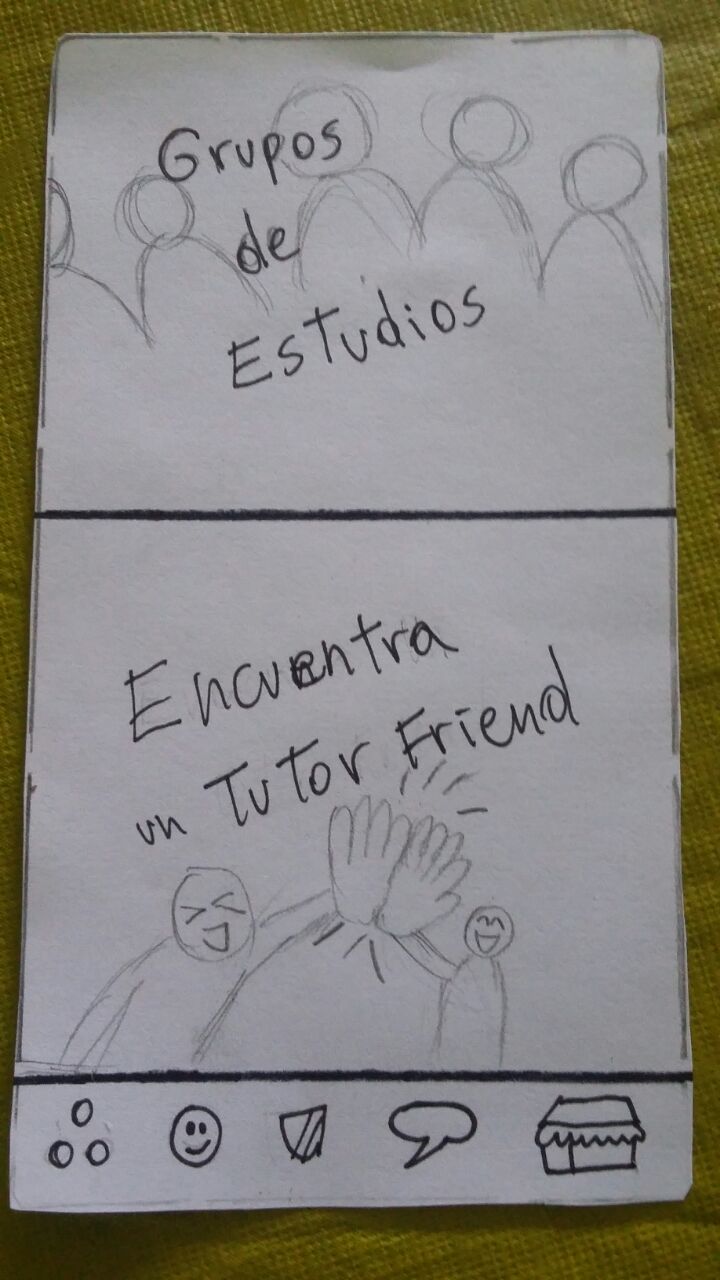 Grupos
de
Estudios
Encuentra
un Tutor Friend